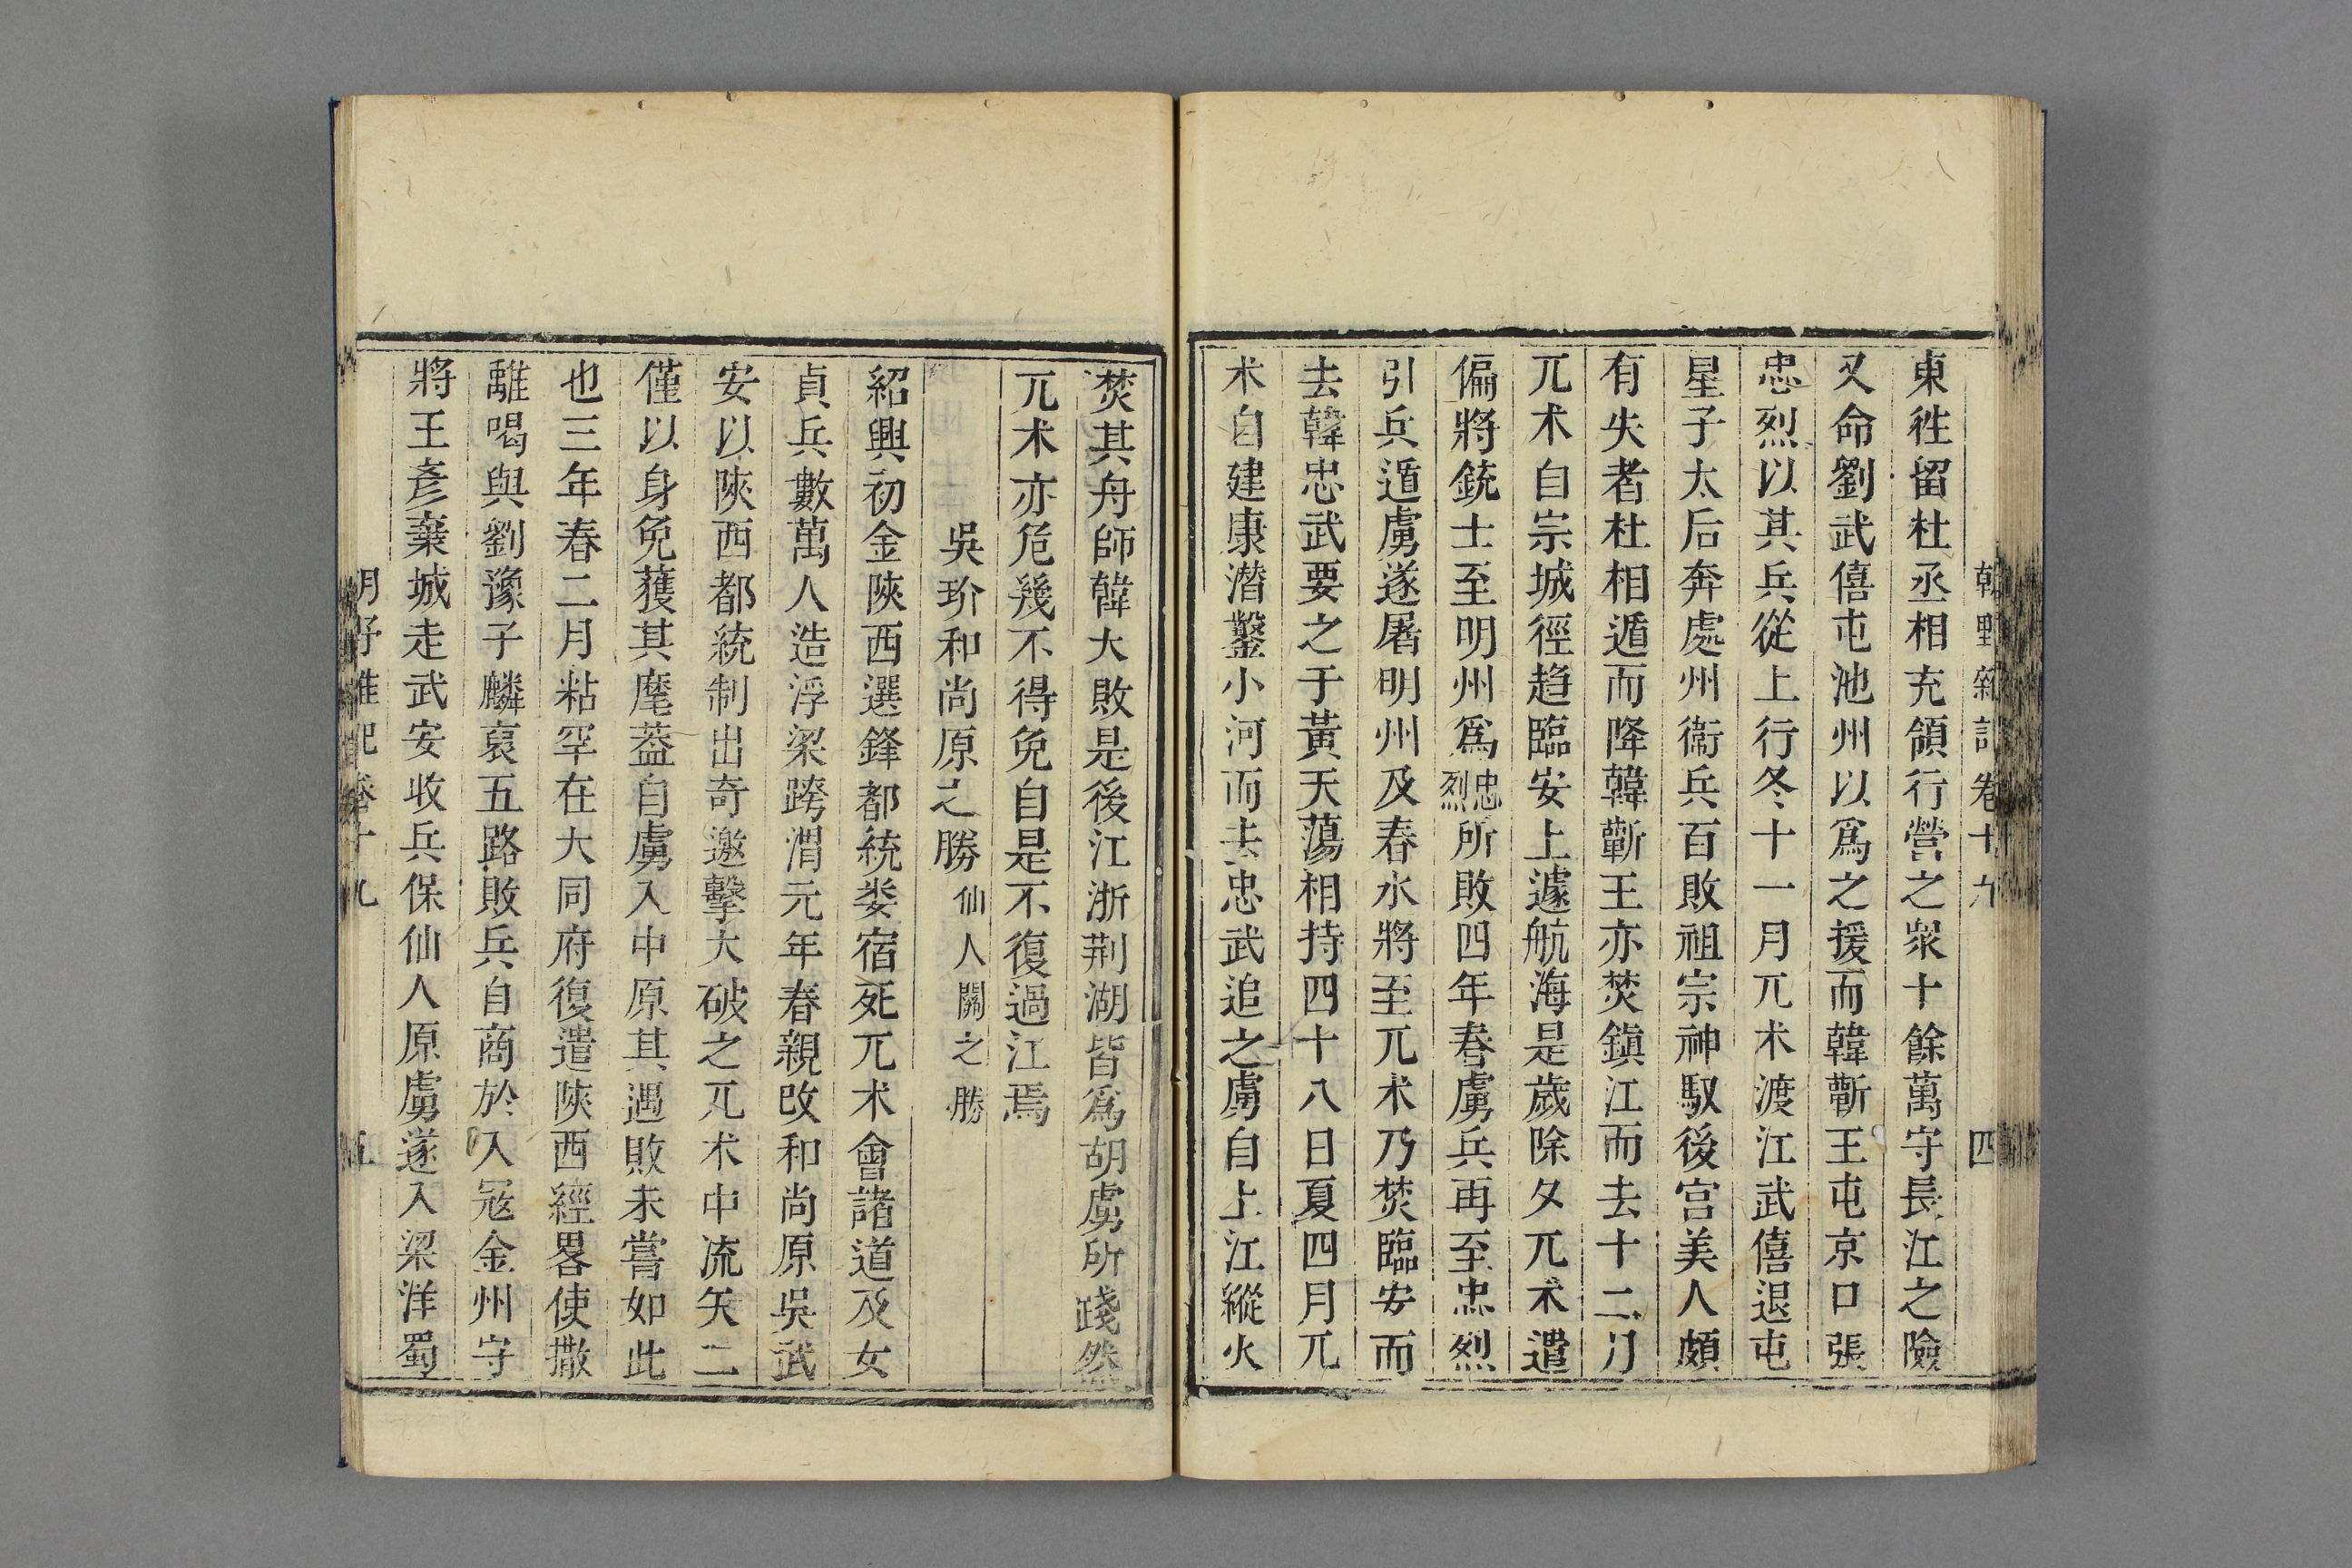 朝野雜記卷十九 四
東徃留杜丞相充領行營之衆十餘萬守長江之險
又命劉武僖屯池州以爲之援而韓蘄王屯京口張
忠烈以其兵從上行冬十一月兀术渡江武僖退屯
星子太后奔處州衞兵百敗祖宗神馭後宮美人頗
有失者杜相遁而降韓蘄王亦焚鎭江而去十二月
兀术自宗城徑趋臨安上遽航海是歲除夕兀术遣
偏將銃士至明州爲忠烈所敗四年春虜兵再至忠烈
引兵遁虜遂屠明州及春水將至兀术乃焚臨安而
去韓忠武要之于黃天蕩相持四十八日夏四月兀
术自建康潛鑿小河而去忠武追之虜自上江縱火
焚其舟師韓大敗是後江浙荆湖皆爲胡虜所踐然
兀术亦危幾不得免自是不復過江焉
吳玠和尚原之勝 仙人關之勝
紹興初金陜西選鋒都統娄宿死兀术會諸道及女
貞兵數萬人造浮梁跨渭元年春親攻和尚原吳武
安以陜西都統制出奇邀擊大破之兀术中流矢二
僅以身免獲其麾葢自虜入中原其遇敗未嘗如此
也三年春二月粘罕在大同府復遣陜西經畧使撒
離喝與劉豫子麟裒五路敗兵自商於入冦金州守
將王彥棄城走武安收兵保仙人原虜遂入梁洋蜀
卷十九 五